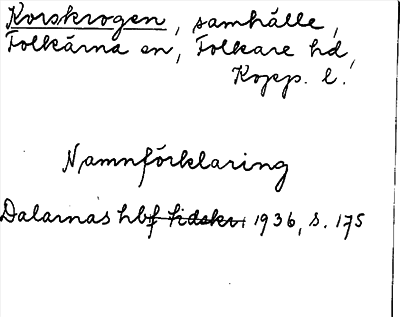 Korskrogen, samhälle,
Folkärna sn, Folkare hd,
Kopp. l.
Namnförklaring
Dalarnas hbf tidskr. 1936, s. 175